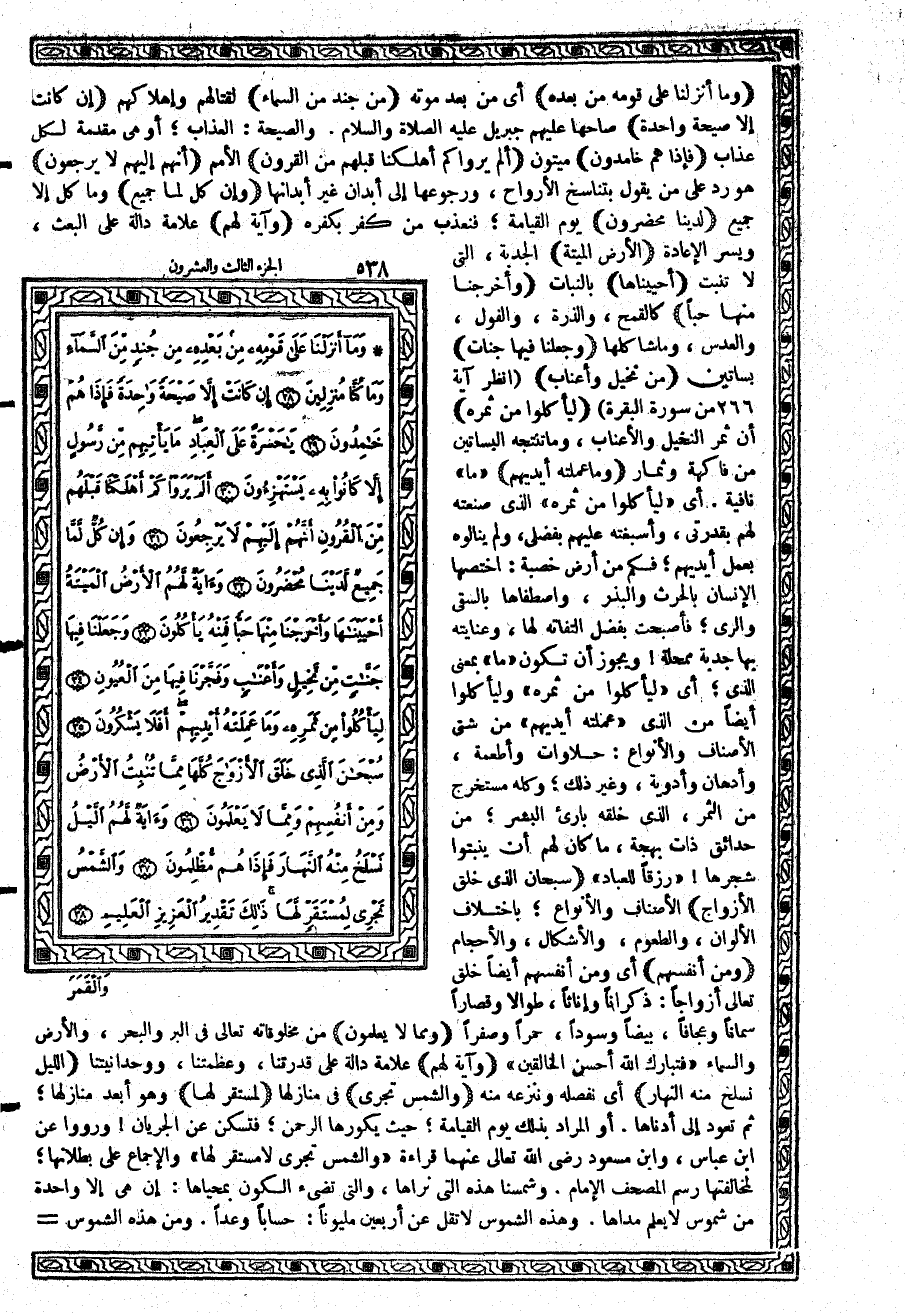 (وما أنزلنا على قومه من بعده) أى من بعد موته (من جند من السماء) لقتالهم وإهلاكهم (إن كانت
إلا صيحة واحدة) صاحها عليهم جبريل عليه الصلاة والسلام . والصيحة : العذاب ؛ أو هى مقدمة لكل
عذاب (فإذا هم خامدون) ميتون (ألم يروا كم أهلكنا قبلهم من القرون) الأمم (أنهم إليهم لا يرجعون)
هو رد على من يقول بتناسخ الأرواح ، ورجوعها إلى أبدان غير أبدانها (وإن كل لما جميع) وما كل إلا
جميع (لدينا محضرون) يوم القيامة ؛ فنعذب من كفر بكفره (وآية لهم) علامة دالة على البعث ،
ويسر الإعادة (الأرض الميتة) الجدبة ، التى
لا تنبت (أحييناها) بالنبات (وأخرجنا
منها حباً) كالقمح ، والذرة ، والفول ،
والعدس ، وماشاكلها (وجعلنا فيها جنات)
بساتين (من نخيل وأعناب) (انظر آية
٢٦٦ من سورة البقرة) (ليأكلوا من ثمره)
أى ثمر النخيل والأعناب ، وماتنتجه البساتين
من فاكهة وثمار (وماعملته أيديهم) «ما»
نافية . أى «ليأكلوا من ثمره» الذى صنعته
لهم بقدرتى ، وأسبغته عليهم بفضلى، ولم ينالوه
بعمل أيديهم ؛ فكم من أرض خصبة : اختصها
الإنسان بالحرث والبذر ، واصطفاها بالسقى
والرى ؛ فأصبحت بفضل التفاته لها ، وعنايته
بها جدبة ممحلة ! ويجوز أن تكون «ما» بمعنى
الذى ؛ أى «ليأكلوا من ثمره» وليأكلوا
أيضاً من الذى «عملته أيديهم» من شتى
الأصناف والأنواع : حلاوات وأطعمة ،
وأدهان وأدوية ، وغير ذلك ؛ وكله مستخرج
من الثمر ، الذى خلقه بارئ البشر ؛ من
حدائق ذات بهجة ، ما كان لهم أن ينبتوا
شجرها ! «رزقاً للعباد» (سبحان الذى خلق
الأزواج) الأصناف والأنواع ؛ باختلاف
الألوان ، والطعوم ، والأشكال ، والأحجام
(ومن أنفسهم) أى ومن أنفسهم أيضاً خلق
تعالى أزواجاً : ذكراناً وإناثاً ، طوالا وقصاراً
الجزء الثالث والعشرون ٥٣٨
* وَمَآ أَنزَلْنَا عَلَىٰ قَوْمِهِۦ مِنۢ بَعْدِهِۦ مِن جُندٍ مِّنَ ٱلسَّمَآءِ
وَمَا كُنَّا مُنزِلِينَ ٢٨ إِن كَانَتْ إِلَّا صَيْحَةً وَٰحِدَةً فَإِذَا هُمْ
خَٰمِدُونَ ٢٩ يَٰحَسْرَةً عَلَى ٱلْعِبَادِ ۚ مَا يَأْتِيهِم مِّن رَّسُولٍ
إِلَّا كَانُوا۟ بِهِۦ يَسْتَهْزِءُونَ ٣٠ أَلَمْ يَرَوْا۟ كَمْ أَهْلَكْنَا قَبْلَهُم
مِّنَ ٱلْقُرُونِ أَنَّهُمْ إِلَيْهِمْ لَا يَرْجِعُونَ ٣١ وَإِن كُلٌّ لَّمَّا
جَمِيعٌ لَّدَيْنَا مُحْضَرُونَ ٣٢ وَءَايَةٌ لَّهُمُ ٱلْأَرْضُ ٱلْمَيْتَةُ
أَحْيَيْنَٰهَا وَأَخْرَجْنَا مِنْهَا حَبًّا فَمِنْهُ يَأْكُلُونَ ٣٣ وَجَعَلْنَا فِيهَا
جَنَّٰتٍ مِّن نَّخِيلٍ وَأَعْنَٰبٍ وَفَجَّرْنَا فِيهَا مِنَ ٱلْعُيُونِ ٣٤
لِيَأْكُلُوا۟ مِن ثَمَرِهِۦ وَمَا عَمِلَتْهُ أَيْدِيهِمْ ۖ أَفَلَا يَشْكُرُونَ ٣٥
سُبْحَٰنَ ٱلَّذِى خَلَقَ ٱلْأَزْوَٰجَ كُلَّهَا مِمَّا تُنۢبِتُ ٱلْأَرْضُ
وَمِنْ أَنفُسِهِمْ وَمِمَّا لَا يَعْلَمُونَ ٣٦ وَءَايَةٌ لَّهُمُ ٱلَّيْلُ
نَسْلَخُ مِنْهُ ٱلنَّهَارَ فَإِذَا هُم مُّظْلِمُونَ ٣٧ وَٱلشَّمْسُ
تَجْرِى لِمُسْتَقَرٍّ لَّهَا ۚ ذَٰلِكَ تَقْدِيرُ ٱلْعَزِيزِ ٱلْعَلِيمِ ٣٨
وَٱلْقَمَرَ
سماناً وعجافاً ، بيضاً وسوداً ، حمراً وصفراً (ومما لا يعلمون) من مخلوقاته تعالى فى البر والبحر ، والأرض
والسماء «فتبارك الله أحسن الخالقين» (وآية لهم) علامة دالة على قدرتنا ، وعظمتنا ، ووحدانيتنا (الليل
نسلخ منه النهار) أى نفصله وننزعه منه (والشمس تجرى) فى منازلها (لمستقر لها) وهو أبعد منازلها ؛
ثم تعود إلى أدناها . أو المراد بذلك يوم القيامة ؛ حيث يكورها الرحمن ؛ فتسكن عن الجريان ! ورووا عن
ابن عباس ، وابن مسعود رضى الله تعالى عنهما قراءة «والشمس تجرى لامستقر لها» والإجماع على بطلانها ؛
لمخالفتها رسم المصحف الإمام . وشمسنا هذه التى نراها ، والتى تضىء الكون بمحياها : إن هى إلا واحدة
من شموس لايعلم مداها . وهذه الشموس لاتقل عن أربعين مليوناً : حساباً وعداً . ومن هذه الشموس =